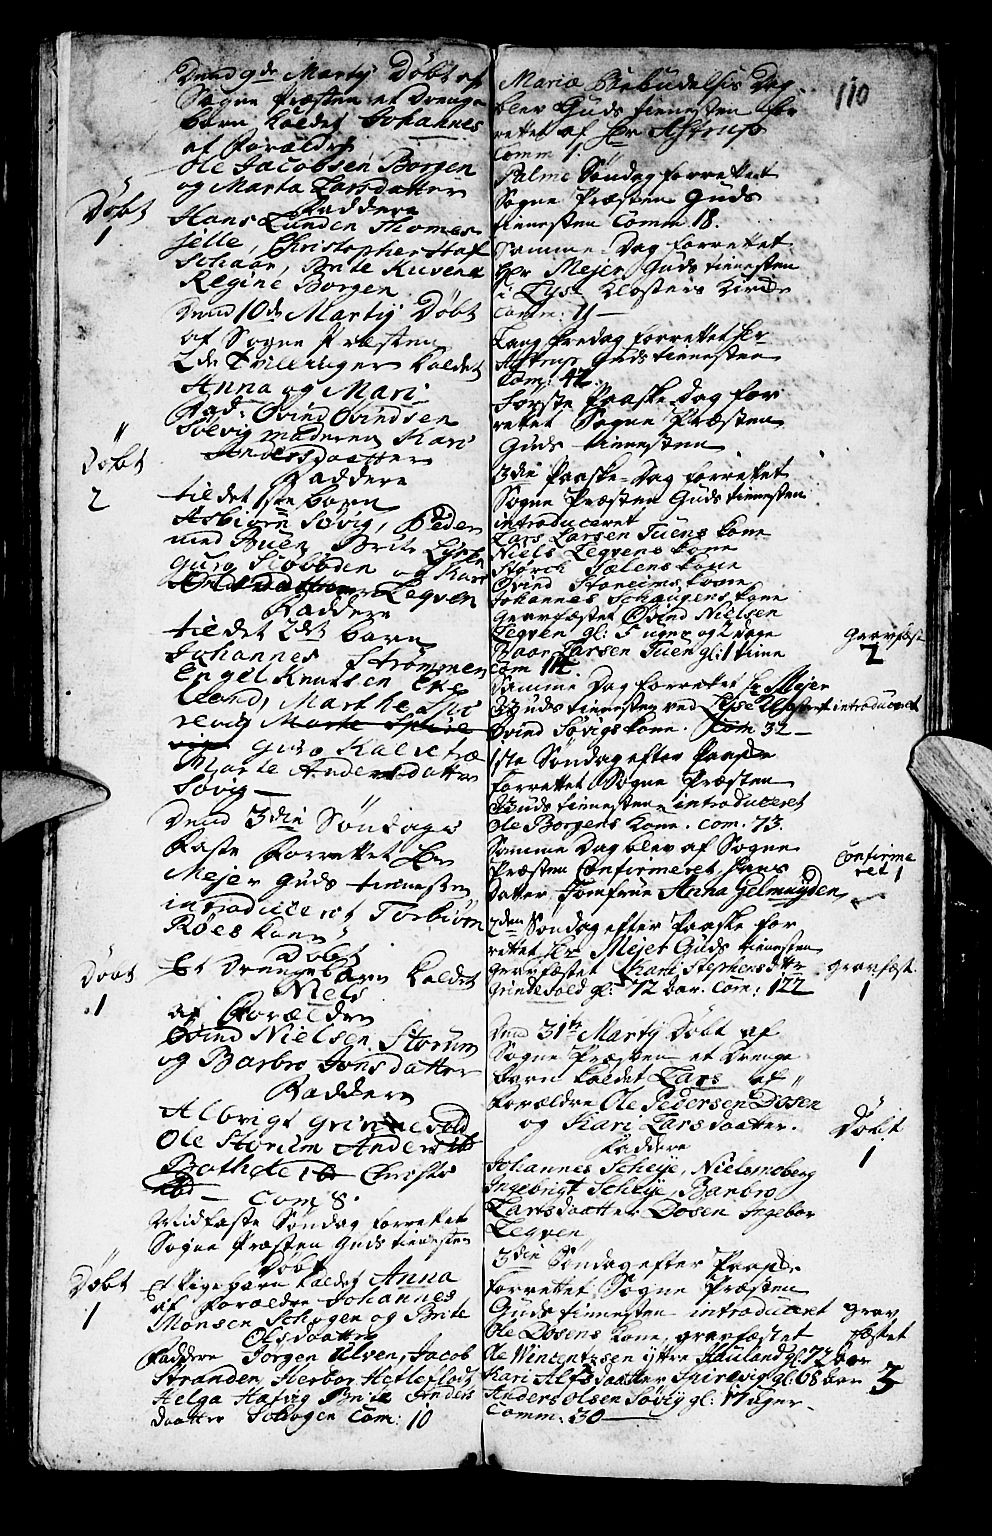 Dend 9de Martij Døbt af
Sogne Præsten et Drenge
barn kaldet Johannes
af Forældre
Ole Jacobsen Borgen
og Marta Larsdatter
Faddere
Døbt
1
Hans Lunden Thomes
jelle, Christopher Haf
schaar, Brite Rusene
Regine Borgen
Dend 10de Martij Døbt
af Sogne Præsten
2de Tvillinger kaldet
Anna og Mari
Fad: Øvind Øvindsen
Søevig moderen Kari
Andersdaatter
Døbt
2
Faddere
til det 1ste barn
Asbiørn Søvig, Peder
med Buen Brite Lysse
guro Skoubden og Kari
Tegven
Faddere
til det 2det barn
Johannes Strømmen
Engel Knutsen Eke
land, Marthe Spi
revig
guro Kalvetræ
Marte Andersdatter
Søvig
Dend 3die Søndag i
Faste Forrettet Hr
Mejer Guds tienesten
introduceret Torbiørn
Røes kone
Døbt
Døbt
1
Et Drenge barn kaldet
Niels
af Forældre
Øvind Nielsen Storum
og Barbro Jonsdatter
Faddere
Albrigt Grindevold
Ole Storum Anders ib
Bothilde ib Christi
ib
Com 8.
Midfaste Søndag forrettet
Sogne Præsten Guds tienesten
Døbt
Døbt
1
Et Pigebarn kaldet Anna
af forældre Johannes
Monsen Schogen og Brite
Olsdaatter
Faddere Jørgen Ulven, Jacob
Stranden, Herbor Hetleflodt
Helga Hafvig Brite Anders
daatter Schogen Com: 10
110
Mariæ Bebudelsis Dag
blev Guds tienesten for
rettet af Hr Astrup
Comm 1.
Palme Søndag forrettet
Sogne Præsten Guds
tienesten Comm. 18.
Samme Dag forrettet
Her Mejer Guds tienesten
i Lyse Klosters Kirche
Comm: 11
Lang fredag forrettet Hr
Astrup Guds tienesten
Com: 42.
Første Paaske Dag for
rettet Sogne Præsten
Guds tienesten
3die Paaske-Dag forrettet
Sogne Præsten Guds tienesten
introduceret
Lars Larsen Tuens kone
Niels Tegvens kone
Størck Hølens kone
Øvind Storeims kone
Johannes Schougens kone
gravfæstet Øvind Nielsen
Tegven gl: 5 uger og 2 dage
Baar Larsen Tuen gl: 1 time
Com 112.
gravfæst
2
Samme Dag forrettet Hr Mejer
Guds tienesten ved Lyse Closter introduceret
Øvind Søvigs kone. Com 32
1ste Søndag efter Paaske
forrettet Sogne Præsten
Guds tienesten, introduceret
Ole Borgens kone. Com. 73.
Samme Dag blev af Sogne
Præsten Confirmeret hans
Datter Jomfrue Anna Gelmuyden
Confirme
ret 1
2den Søndag efter Paaske for
rettet Hr Mejer Guds tienesten
gravfæstet Kari Stephensdtr
Grindevold gl: 72 aar. Com: 122
gravfæst
1
Dend 31te Martij Døbt af
Sogne Præsten et Drenge
barn kaldet Lars af
forældre Ole Pedersen Dosen
og Kari Larsdaatter.
Døbt
1
Faddere
Johannes Scheije, Niels Moberg
Ingebrigt Scheije, Barbro
Larsdaatter Dosen Ingebor
Tegven
3die Søndag efter Paaske
forrettet Sogne Præsten
Guds tienesten introduceret
Ole Dosens kone, gravfæstet
Ole Wincentzsen yttre Hauland gl: 72 aar
Kari Alfsdaatter Spirevig gl: 68 aar
Anders Olsen Søvig gl: 17 uger
Comm: 30
grav
fæstet
3